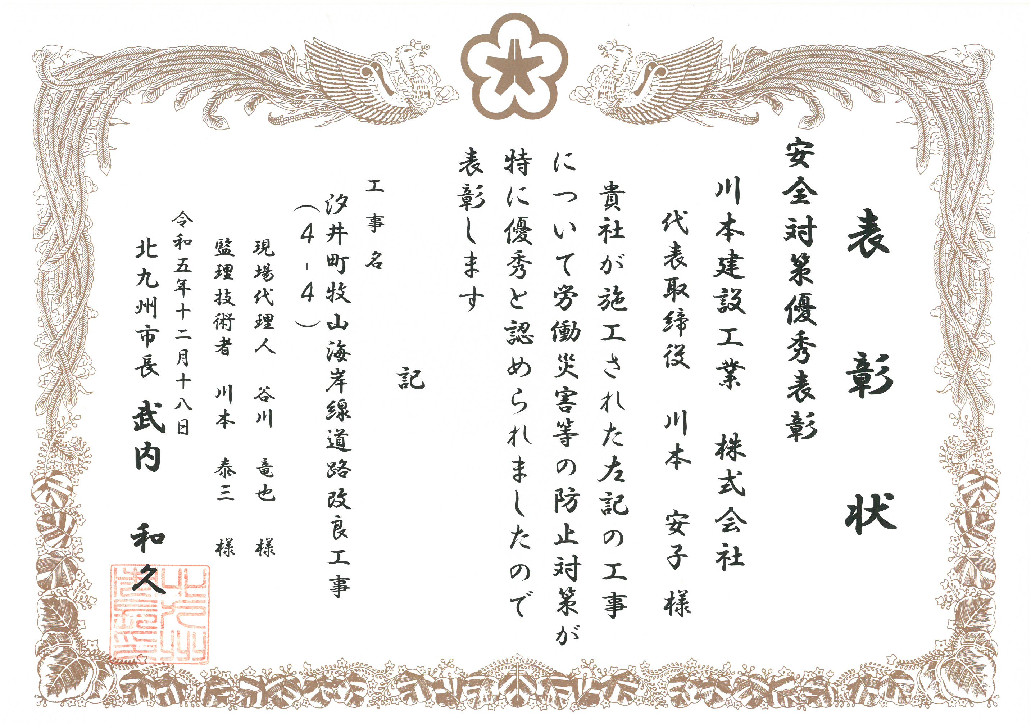 表彰状
安全対策優秀表彰
川本建設工業 株式会社
代表取締役 川本 安子 様
貴社が施工された左記の工事
について労働災害等の防止対策が
特に優秀と認められましたので
表彰します
記
工事名
汐井町牧山海岸線道路改良工事
(4-4)
現場代理人 谷川 竜也 様
監理技術者 川本 泰三 様
令和五年十二月十八日
北九州市長 武内 和久